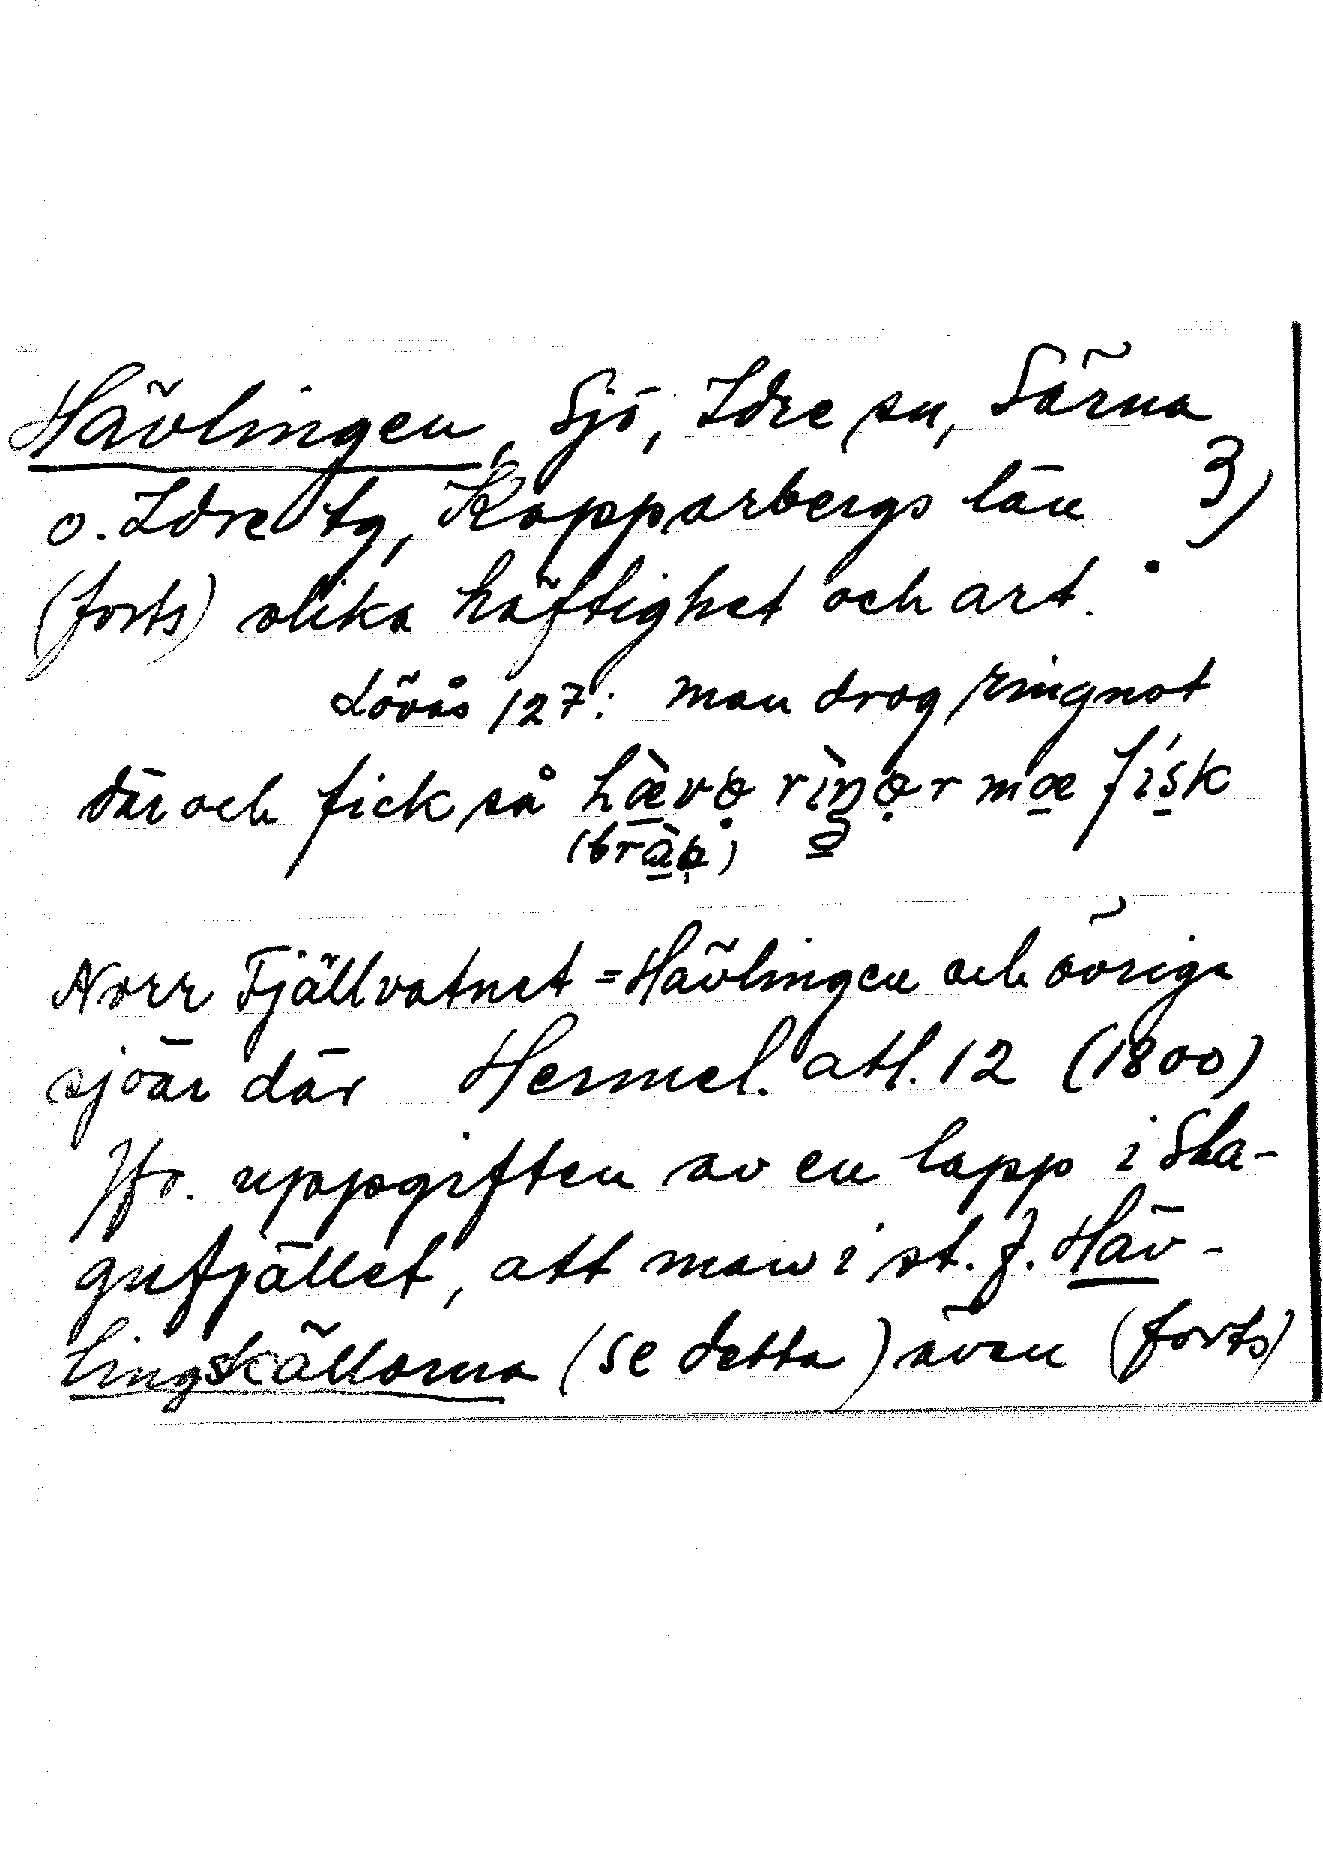 Hävlingen, Sjö, Idre sn, Särna
o. Idre tg, Kopparbergs län 3)
(forts) olika häftighet och art.
Lövås 127: man drog ringnot
där och fick så hævə rìŋər mæ fisk
Norr Fjällvatnet = Hävlingen och övriga
sjöar där Hermel. atl. 12 (1800)
Jfr. uppgiften av en lapp i Sla-
gufjället, att man i st. f. Häv-
lingskällorna (se detta) även (forts)